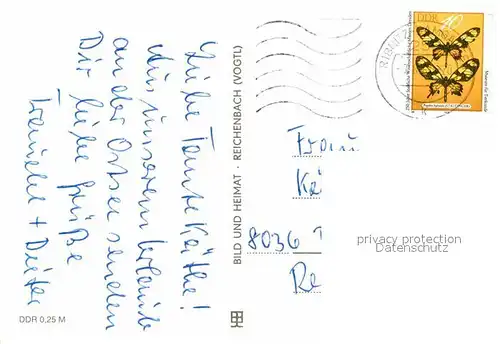 Liebe Tante Käthe!
Aus unserem Urlaub
an der Ostsee senden
Dir liebe Grüße
Traudel + Dieter
DDR 0,25 M
BILD UND HEIMAT · REICHENBACH (VOGTL)
DDR
Frau
Kä
8036
Re
privacy protection
Datenschutz